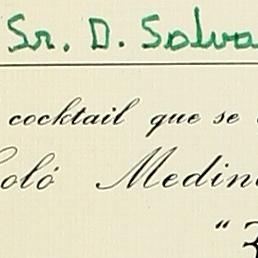 Sr. D. Salva
cocktail que se
oló Medin
"